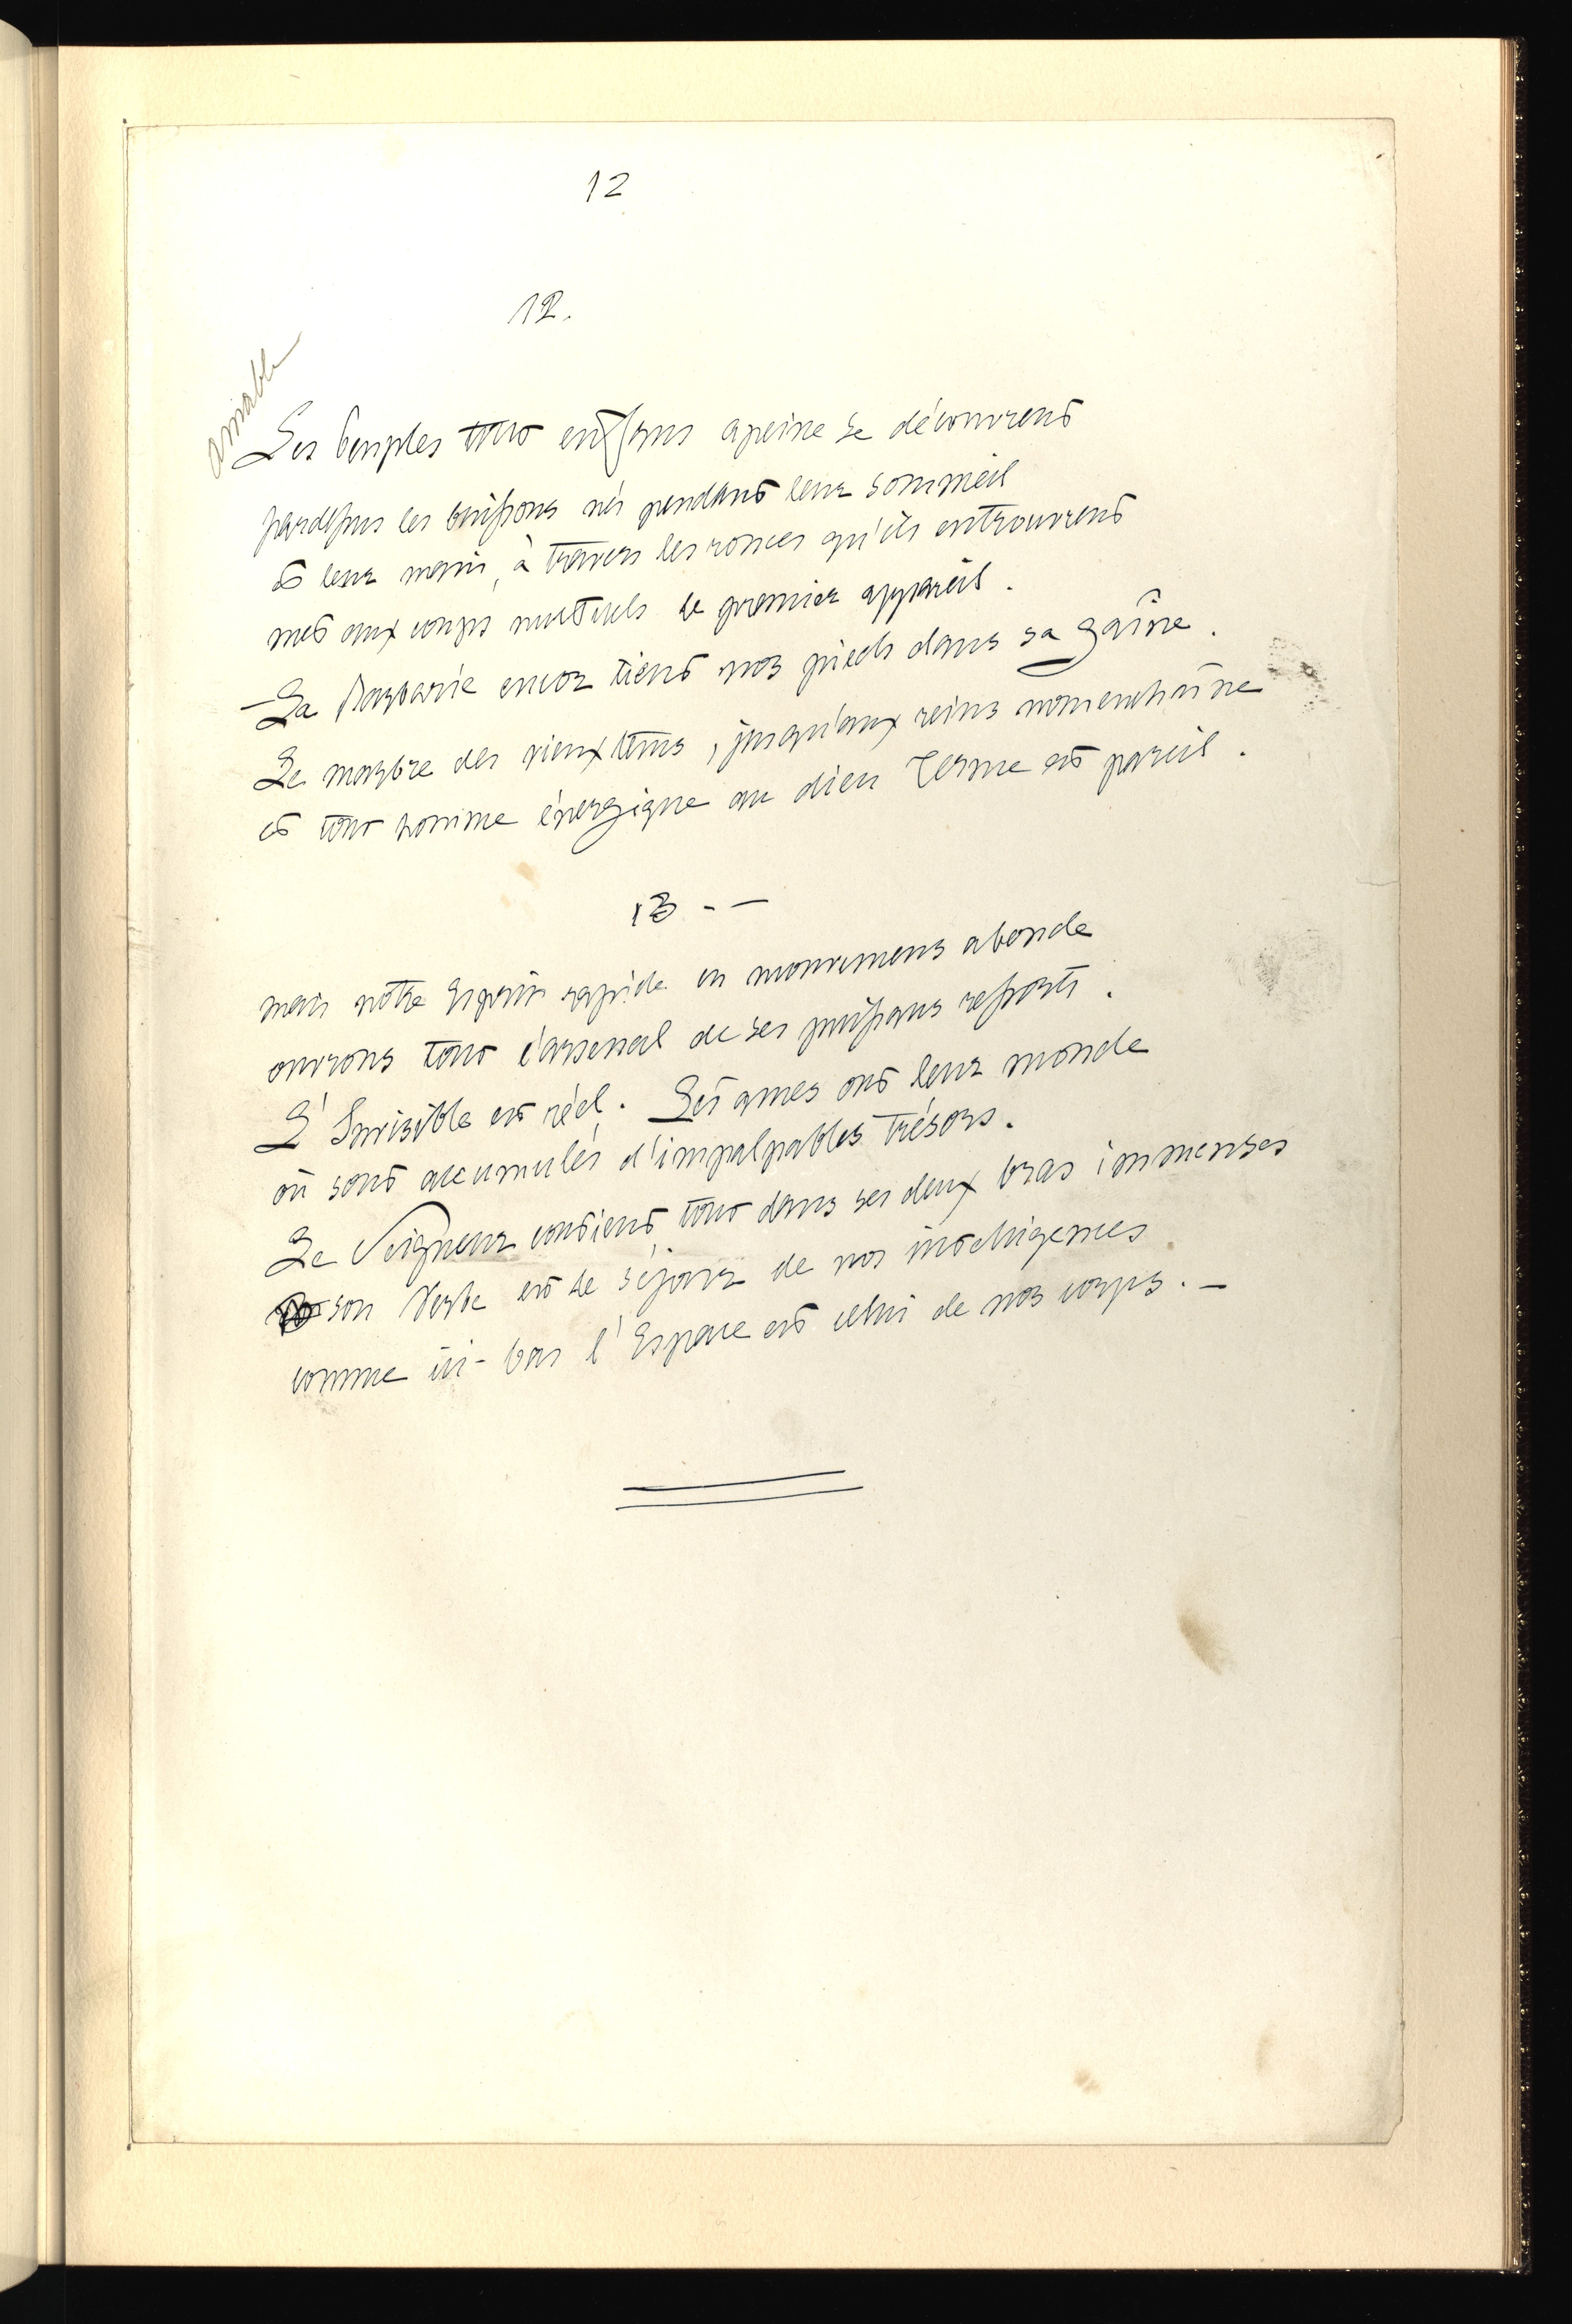 12
12.
amable
Les Peuples tout enfans apeine se découvrent
pardessus les buissons nés pendant leur sommeil
et leur main, à travers les ronces qu'ils entrouvrent
met aux coups mutuels le premier appareil.
— La Barbarie encor tient nos pieds dans sa gaîne.
Le marbre des vieux tems, jusqu'aux reins nous enchaîne
et tout homme énergique au dieu Terme est pareil.
13 - —
mais notre Esprit rapide en mouvemens abonde
ouvrons tout l'arsenal de ses puissans ressorts.
L'Invisible est réel. Les ames ont leur monde
où sont accumulés d'impalpables trésors.
Le Seigneur contient tout dans ses deux bras immenses
son Verbe est le séjour de nos intelligences
comme ici-bas l'Espace est celui de nos corps. —